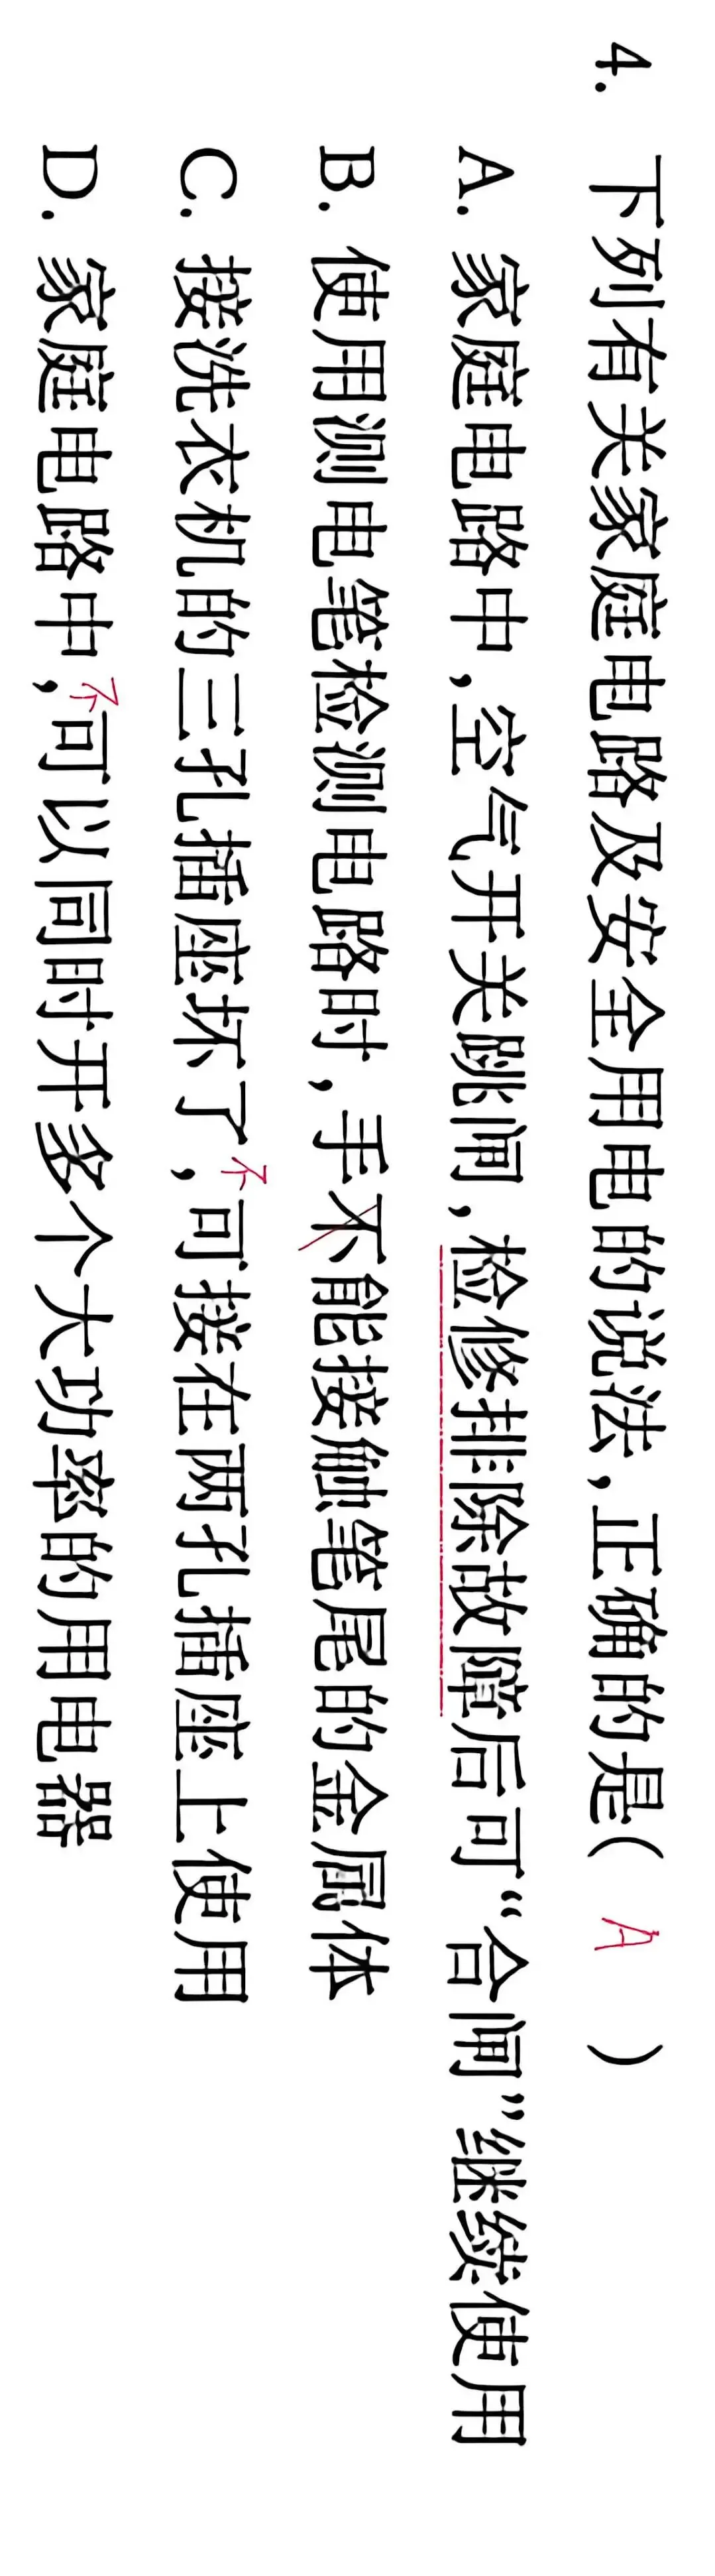 4. 下列有关家庭电路及安全用电的说法,正确的是( A )
A. 家庭电路中,空气开关跳闸,检修排除故障后可“合闸”继续使用
B. 使用测电笔检测电路时,手不能接触笔尾的金属体
C. 接洗衣机的三孔插座坏了,不可接在两孔插座上使用
D. 家庭电路中,不可以同时开多个大功率的用电器